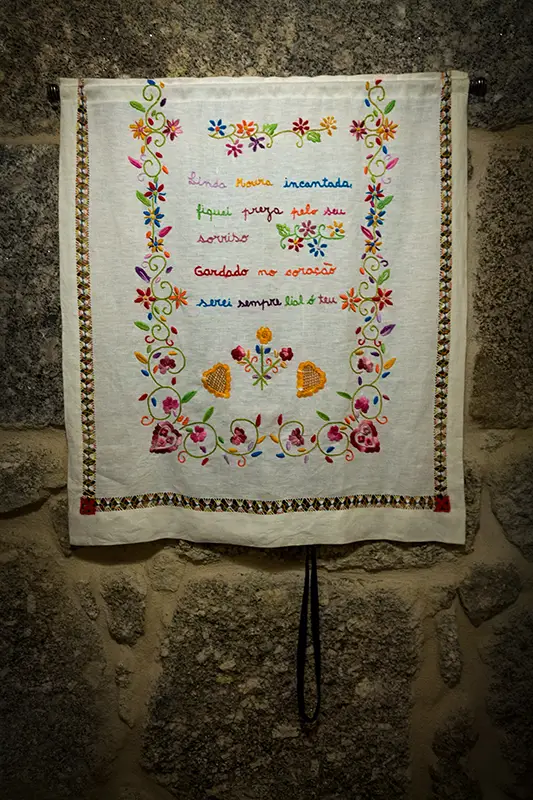 Linda Moura incantada,
fiquei preza pelo seu
sorriso
Gardado no coração
serei sempre lial ó teu